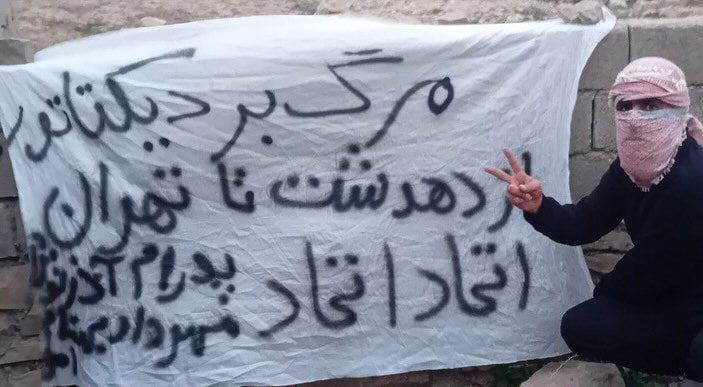 مرگ بر دیکتاتور
از دهدشت تا تهران
اتحاد اتحاد
پدرام آذر
مهرداد بهنام